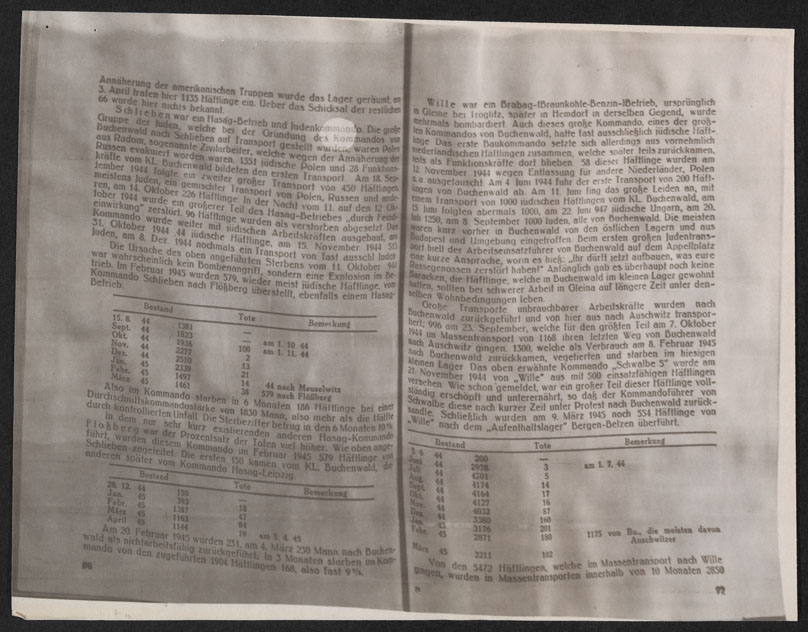 Annäherung der amerikanischen Truppen wurde das Lager geräumt, am
3. April trafen hier 1135 Häftlinge ein. Ueber das Schicksal der restlichen
66 wurde hier nichts bekannt.
Schlieben war ein Hasag-Betrieb und Judenkommando. Die große
Gruppe der Juden, welche bei der Gründung des Kommandos von
Buchenwald nach Schlieben auf Transport gestellt wurden, waren Polen
aus Radom, sogenannte Zivilarbeiter, welche wegen der Annäherung der
Russen evakuiert worden waren. 1351 jüdische Polen und 28 Funktions-
kräfte vom KL. Buchenwald bildeten den ersten Transport. Am 18. Sep-
tember 1944 folgte ein zweiter großer Transport von 450 Häftlingen,
meistens Juden, ein gemischter Transport von Polen, Russen und ande-
ren, am 14. Oktober 226 Häftlinge. In der Nacht vom 11. auf den 12. Ok-
tober 1944 wurde ein größerer Teil des Hasag-Betriebes „durch Feind-
einwirkung" zerstört. 96 Häftlinge wurden als verstorben abgesetzt. Das
Kommando wurde weiter mit jüdischen Arbeitskräften ausgebaut, am
31. Oktober 1944 44 jüdische Häftlinge, am 15. November 1944
Juden, am 8. Dez. 1944 nochmals ein Transport von fast ausschl. Juden
Die Ursache des oben angeführten Sterbens vom 11. Oktober
war wahrscheinlich kein Bombenangriff, sondern eine Explosion in Be-
trieb. Im Februar 1945 wurden 579, wieder meist jüdische Häftlinge, vom
Kommando Schlieben nach Flößberg überstellt, ebenfalls einem Hasag-
Betrieb.
Bestand Tote Bemerkung
15. 8. 44 1381 —
Sept. 44 1823 — am 1. 10. 44
Okt. 44 1936 100 am 1. 11. 44
Nov. 44 2277 2
Dez. 44 2510 13
Jän. 45 2339 21
Febr. 45 1497 14 44 nach Meuselwitz
März 45 1461 38 579 nach Flößberg
Also im Kommando starben in 6 Monaten 186 Häftlinge bei einer
Durchschnittskommandostärke von 1830 Mann, also mehr als die Hälfte
durch kontrollierten Unfall. Die Sterbeziffer betrug in den 6 Monaten 10 %.
In dem nur sehr kurz existierenden anderen Hasag-Kommando
Floßberg war der Prozentsatz der Toten viel höher. Wie oben ange-
führt, wurden diesem Kommando im Februar 1945 579 Häftlinge von
Schlieben zugeteilt. Die ersten 150 kamen vom KL. Buchenwald, die
anderen später vom Kommando Hasag-Leipzig.
Bestand Tote Bemerkung
28. 12. 44 150
Jan. 45
Febr. 45 1287 18
März 45 1163 47
April 45 1144 84
19 am 5. 4. 45
Am 20. Februar 1945 wurden 251, am 4. März 250 Mann nach Buchen-
wald als nichtarbeitsfähig zurückgeführt; in 3 Monaten starben im Kom-
mando von den zugeführten 1904 Häftlingen 168, also fast 9 %.
Wille war ein Brabag-(Braunkohle-Benzin-)Betrieb, ursprünglich
in Gleina bei Troglitz, später in Hemdorf in derselben Gegend, wurde
mehrmals bombardiert. Auch dieses große Kommando, eines der größ-
ten Kommandos von Buchenwald, hatte fast ausschließlich jüdische Häft-
linge. Das erste Baukommando setzte sich allerdings aus vornehmlich
niederländischen Häftlingen zusammen, welche später teils zurückkamen,
teils als Funktionskräfte dort blieben. 58 dieser Häftlinge wurden am
12. November 1944 wegen Entlassung für andere Niederländer, Polen
u.a. ausgetauscht. Am 4. Juni 1944 fuhr der erste Transport von 200 Häft-
lingen von Buchenwald ab. Am 11. Juni fing das große Leiden an, mit
einem Transport von 1000 jüdischen Häftlingen vom KL. Buchenwald, am
Juni folgten abermals 1000, am 22. Juni 947 jüdische Ungarn, am 20.
Juli 1250, am 8. September 1000 Juden, alle von Buchenwald. Die meisten
waren kurz vorher in Buchenwald von den östlichen Lagern und aus
Budapest und Umgebung eingetroffen. Beim ersten großen Judentrans-
port hielt der Arbeitseinsatzführer von Buchenwald auf dem Appellplatz
eine kurze Ansprache, worin es hieß: „Ihr dürft jetzt aufbauen, was eure
Rassegenossen zerstört haben!" Anfänglich gab es überhaupt noch keine
Baracken, die Häftlinge, welche in Buchenwald im kleinen Lager gewohnt
hatten, sollten bei schwerer Arbeit in Gleina auf längere Zeit unter den-
selben Wohnbedingungen leben.
Große Transporte unbrauchbarer Arbeitskräfte wurden nach
Buchenwald zurückgeführt und von hier aus nach Auschwitz transpor-
tiert; 996 am 23. September, welche für den größten Teil am 7. Oktober
1944 im Massentransport von 1168 ihren letzten Weg von Buchenwald
nach Auschwitz gingen. 1500, welche als Verbrauch am 8. Februar 1945
nach Buchenwald zurückkamen, vegetierten und starben im hiesigen
kleinen Lager. Das oben erwähnte Kommando „Schwalbe 5" wurde am
21. November 1944 von „Wille" aus mit 500 einsatzfähigen Häftlingen
versehen. Wie schon gemeldet, war ein großer Teil dieser Häftlinge voll-
ständig erschöpft und unterernährt, so daß der Kommandoführer von
Schwalbe diese nach kurzer Zeit unter Protest nach Buchenwald zurück-
sandte. Schließlich wurden am 9. März 1945 noch 554 Häftlinge von
„Wille" nach dem „Aufenthaltslager" Bergen-Belzen überführt.
Bestand Tote Bemerkung
5. 6. 44 200 —
Juni 44 2938 3 am 1. 7. 44
Juli 44 4201 5
Aug. 44 4174 14
Sept. 44 4164 17
Okt. 44 4127 16
Nov. 44 4032 87
Dez. 44 3380 160
Jän. 45 3176 201
Febr. 45 2871 180 1175 von Bu., die meisten davon
Auschwitzer
März 45 2211 102
Von den 5472 Häftlingen, welche im Massentransport nach Wille
gingen, wurden in Massentransporten innerhalb von 10 Monaten 2850